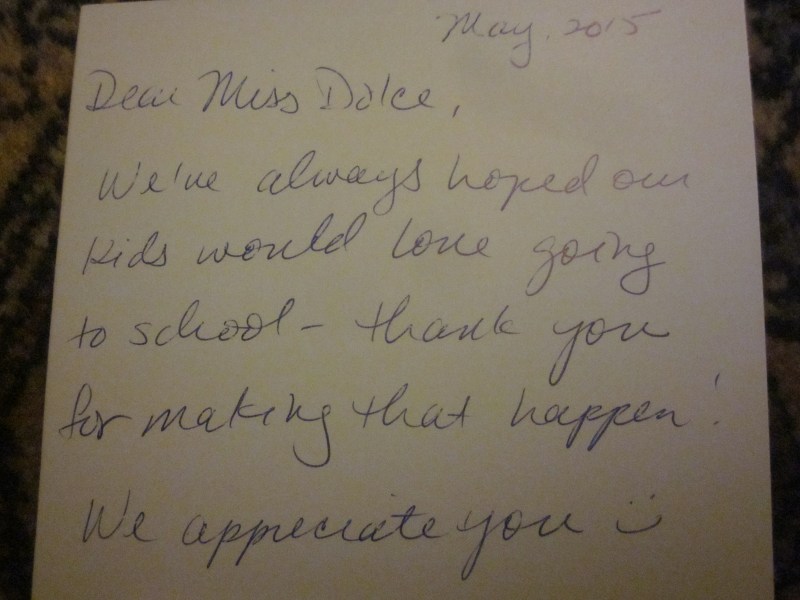 May. 2015
Dear Miss Dolce,
We've always hoped our
kids would love going
to school - thank you
for making that happen!
We appreciate you :)